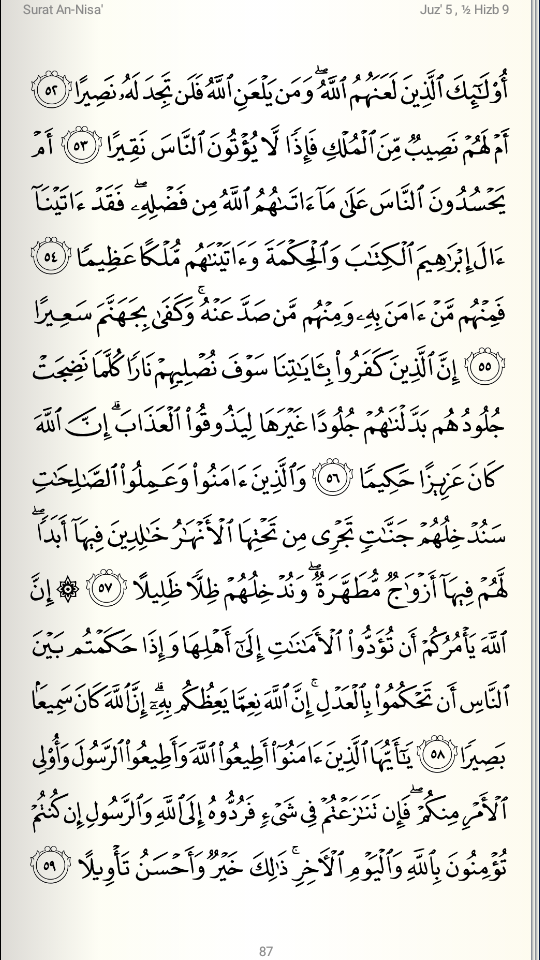 Surat An-Nisa' Juz' 5 , ½ Hizb 9
أُوْلَٰٓئِكَ ٱلَّذِينَ لَعَنَهُمُ ٱللَّهُۖ وَمَن يَلْعَنِ ٱللَّهُ فَلَن تَجِدَ لَهُۥ نَصِيرًا ٥٢
أَمْ لَهُمْ نَصِيبٌ مِّنَ ٱلْمُلْكِ فَإِذًا لَّا يُؤْتُونَ ٱلنَّاسَ نَقِيرًا ٥٣ أَمْ
يَحْسُدُونَ ٱلنَّاسَ عَلَىٰ مَآ ءَاتَىٰهُمُ ٱللَّهُ مِن فَضْلِهِۦۖ فَقَدْ ءَاتَيْنَآ
ءَالَ إِبْرَٰهِيمَ ٱلْكِتَٰبَ وَٱلْحِكْمَةَ وَءَاتَيْنَٰهُم مُّلْكًا عَظِيمًا ٥٤
فَمِنْهُم مَّنْ ءَامَنَ بِهِۦ وَمِنْهُم مَّن صَدَّ عَنْهُۚ وَكَفَىٰ بِجَهَنَّمَ سَعِيرًا
٥٥ إِنَّ ٱلَّذِينَ كَفَرُوا۟ بِـَٔايَٰتِنَا سَوْفَ نُصْلِيهِمْ نَارًا كُلَّمَا نَضِجَتْ
جُلُودُهُم بَدَّلْنَٰهُمْ جُلُودًا غَيْرَهَا لِيَذُوقُوا۟ ٱلْعَذَابَۗ إِنَّ ٱللَّهَ
كَانَ عَزِيزًا حَكِيمًا ٥٦ وَٱلَّذِينَ ءَامَنُوا۟ وَعَمِلُوا۟ ٱلصَّٰلِحَٰتِ
سَنُدْخِلُهُمْ جَنَّٰتٍ تَجْرِى مِن تَحْتِهَا ٱلْأَنْهَٰرُ خَٰلِدِينَ فِيهَآ أَبَدًاۖ
لَّهُمْ فِيهَآ أَزْوَٰجٌ مُّطَهَّرَةٌۖ وَنُدْخِلُهُمْ ظِلًّا ظَلِيلًا ٥٧ ۞ إِنَّ
ٱللَّهَ يَأْمُرُكُمْ أَن تُؤَدُّوا۟ ٱلْأَمَٰنَٰتِ إِلَىٰٓ أَهْلِهَا وَإِذَا حَكَمْتُم بَيْنَ
ٱلنَّاسِ أَن تَحْكُمُوا۟ بِٱلْعَدْلِۚ إِنَّ ٱللَّهَ نِعِمَّا يَعِظُكُم بِهِۦٓۗ إِنَّ ٱللَّهَ كَانَ سَمِيعًۢا
بَصِيرًا ٥٨ يَٰٓأَيُّهَا ٱلَّذِينَ ءَامَنُوٓا۟ أَطِيعُوا۟ ٱللَّهَ وَأَطِيعُوا۟ ٱلرَّسُولَ وَأُو۟لِى
ٱلْأَمْرِ مِنكُمْۖ فَإِن تَنَٰزَعْتُمْ فِى شَىْءٍ فَرُدُّوهُ إِلَى ٱللَّهِ وَٱلرَّسُولِ إِن كُنتُمْ
تُؤْمِنُونَ بِٱللَّهِ وَٱلْيَوْمِ ٱلْءَاخِرِۚ ذَٰلِكَ خَيْرٌ وَأَحْسَنُ تَأْوِيلًا ٥٩
87